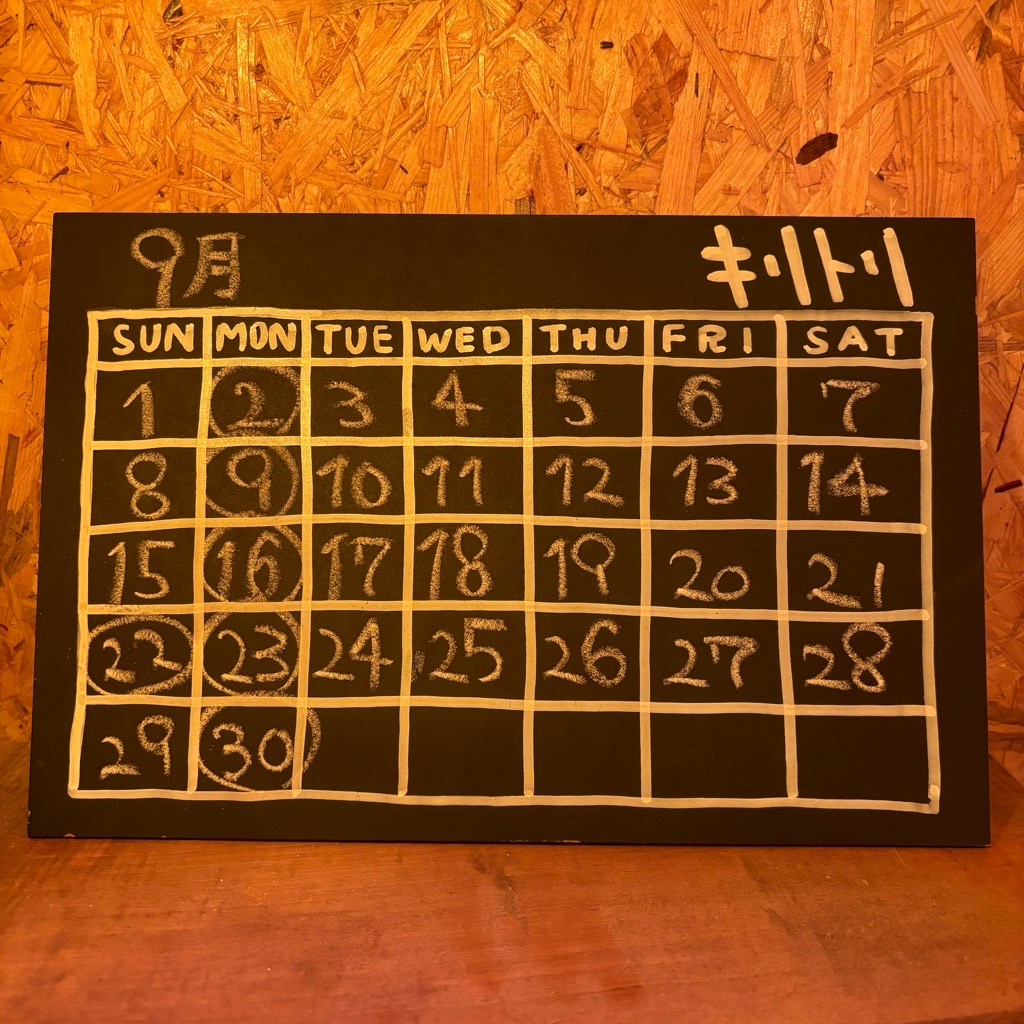 9月 キリトリ
SUN MON TUE WED THU FRI SAT
1 2 3 4 5 6 7
8 9 10 11 12 13 14
15 16 17 18 19 20 21
22 23 24 25 26 27 28
29 30